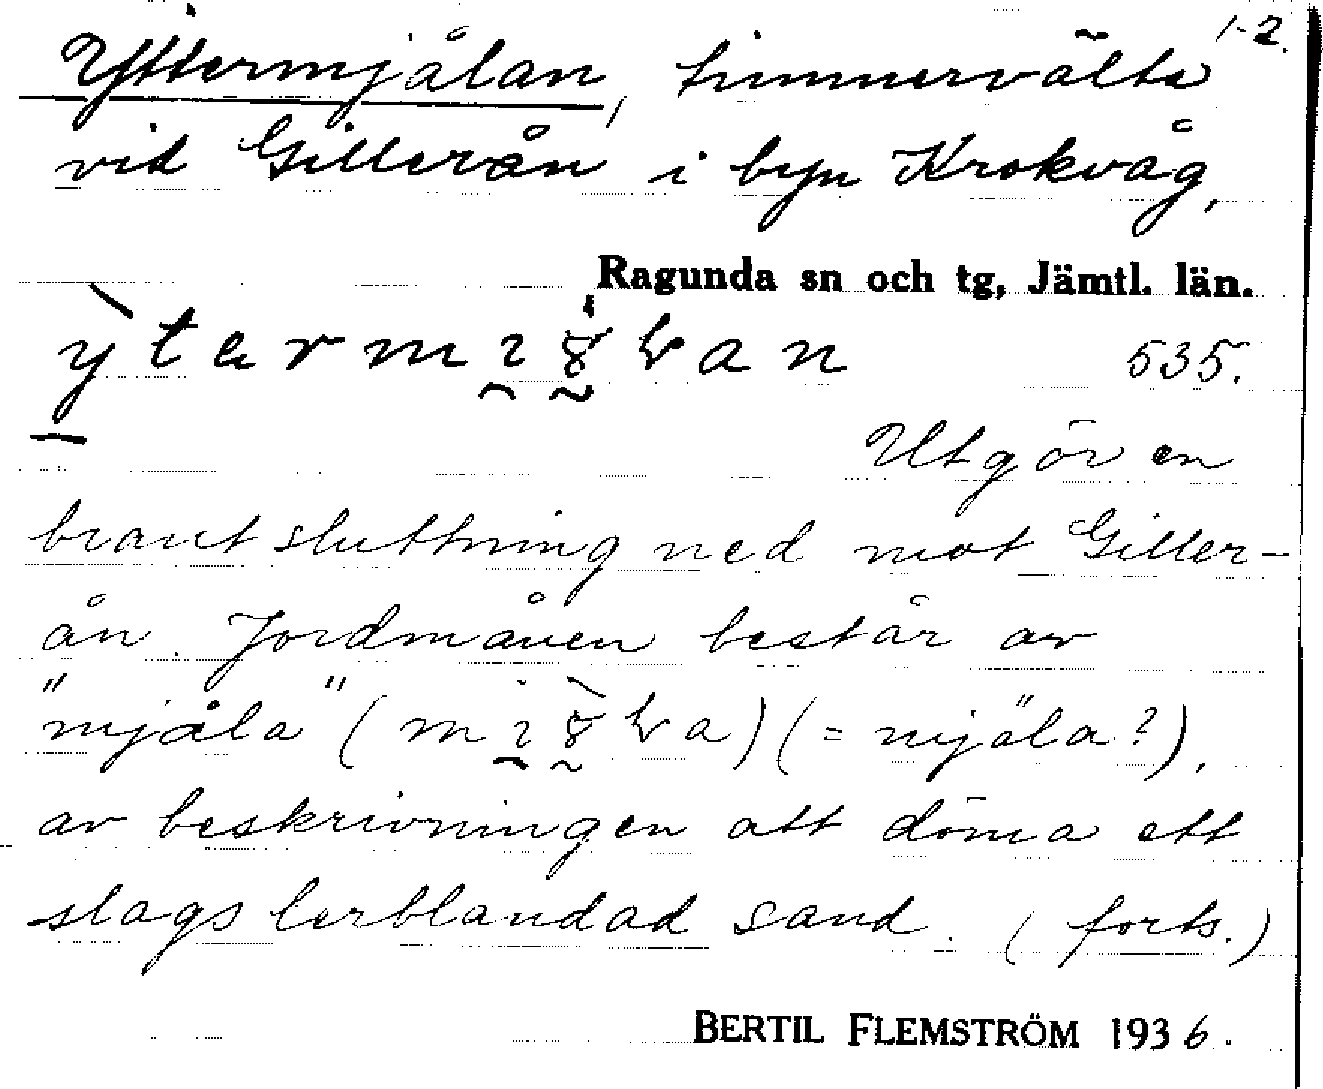 1-2.
Yttermjålan, timmervälta
vid Gillerån i byn Krokvåg,
Ragunda sn och tg, Jämtl. län.
535.
Utgör en
brant sluttning ned mot Giller-
ån. Jordmånen består av
"mjåla" ( ) (= mjäla?),
av beskrivningen att döma ett
slags lerblandad sand. (forts.)
BERTIL FLEMSTRÖM 1936.